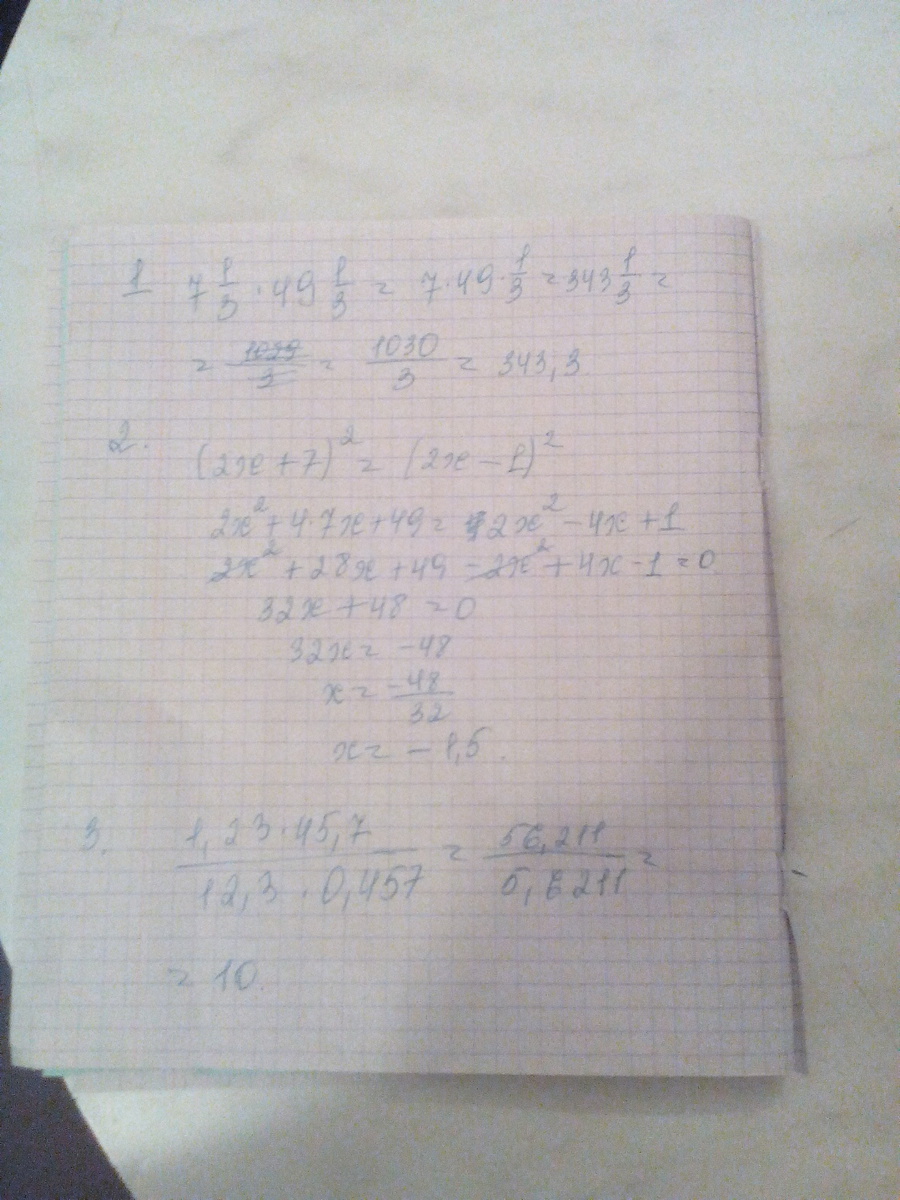 1 7 1/3 · 49 1/3 = 7·49·1/3 = 343 1/3 =
= 1029/3 = 1030/3 = 343,3.
2.
(2x+7)² = (2x-1)²
2x²+4·7x+49 = 2x²-4x+1
2x²+28x+49-2x²+4x-1=0
32x+48=0
32x=-48
x=-48/32
x=-1,5.
3. 1,23·45,7/12,3·0,457 = 56,211/5,6211 =
= 10.